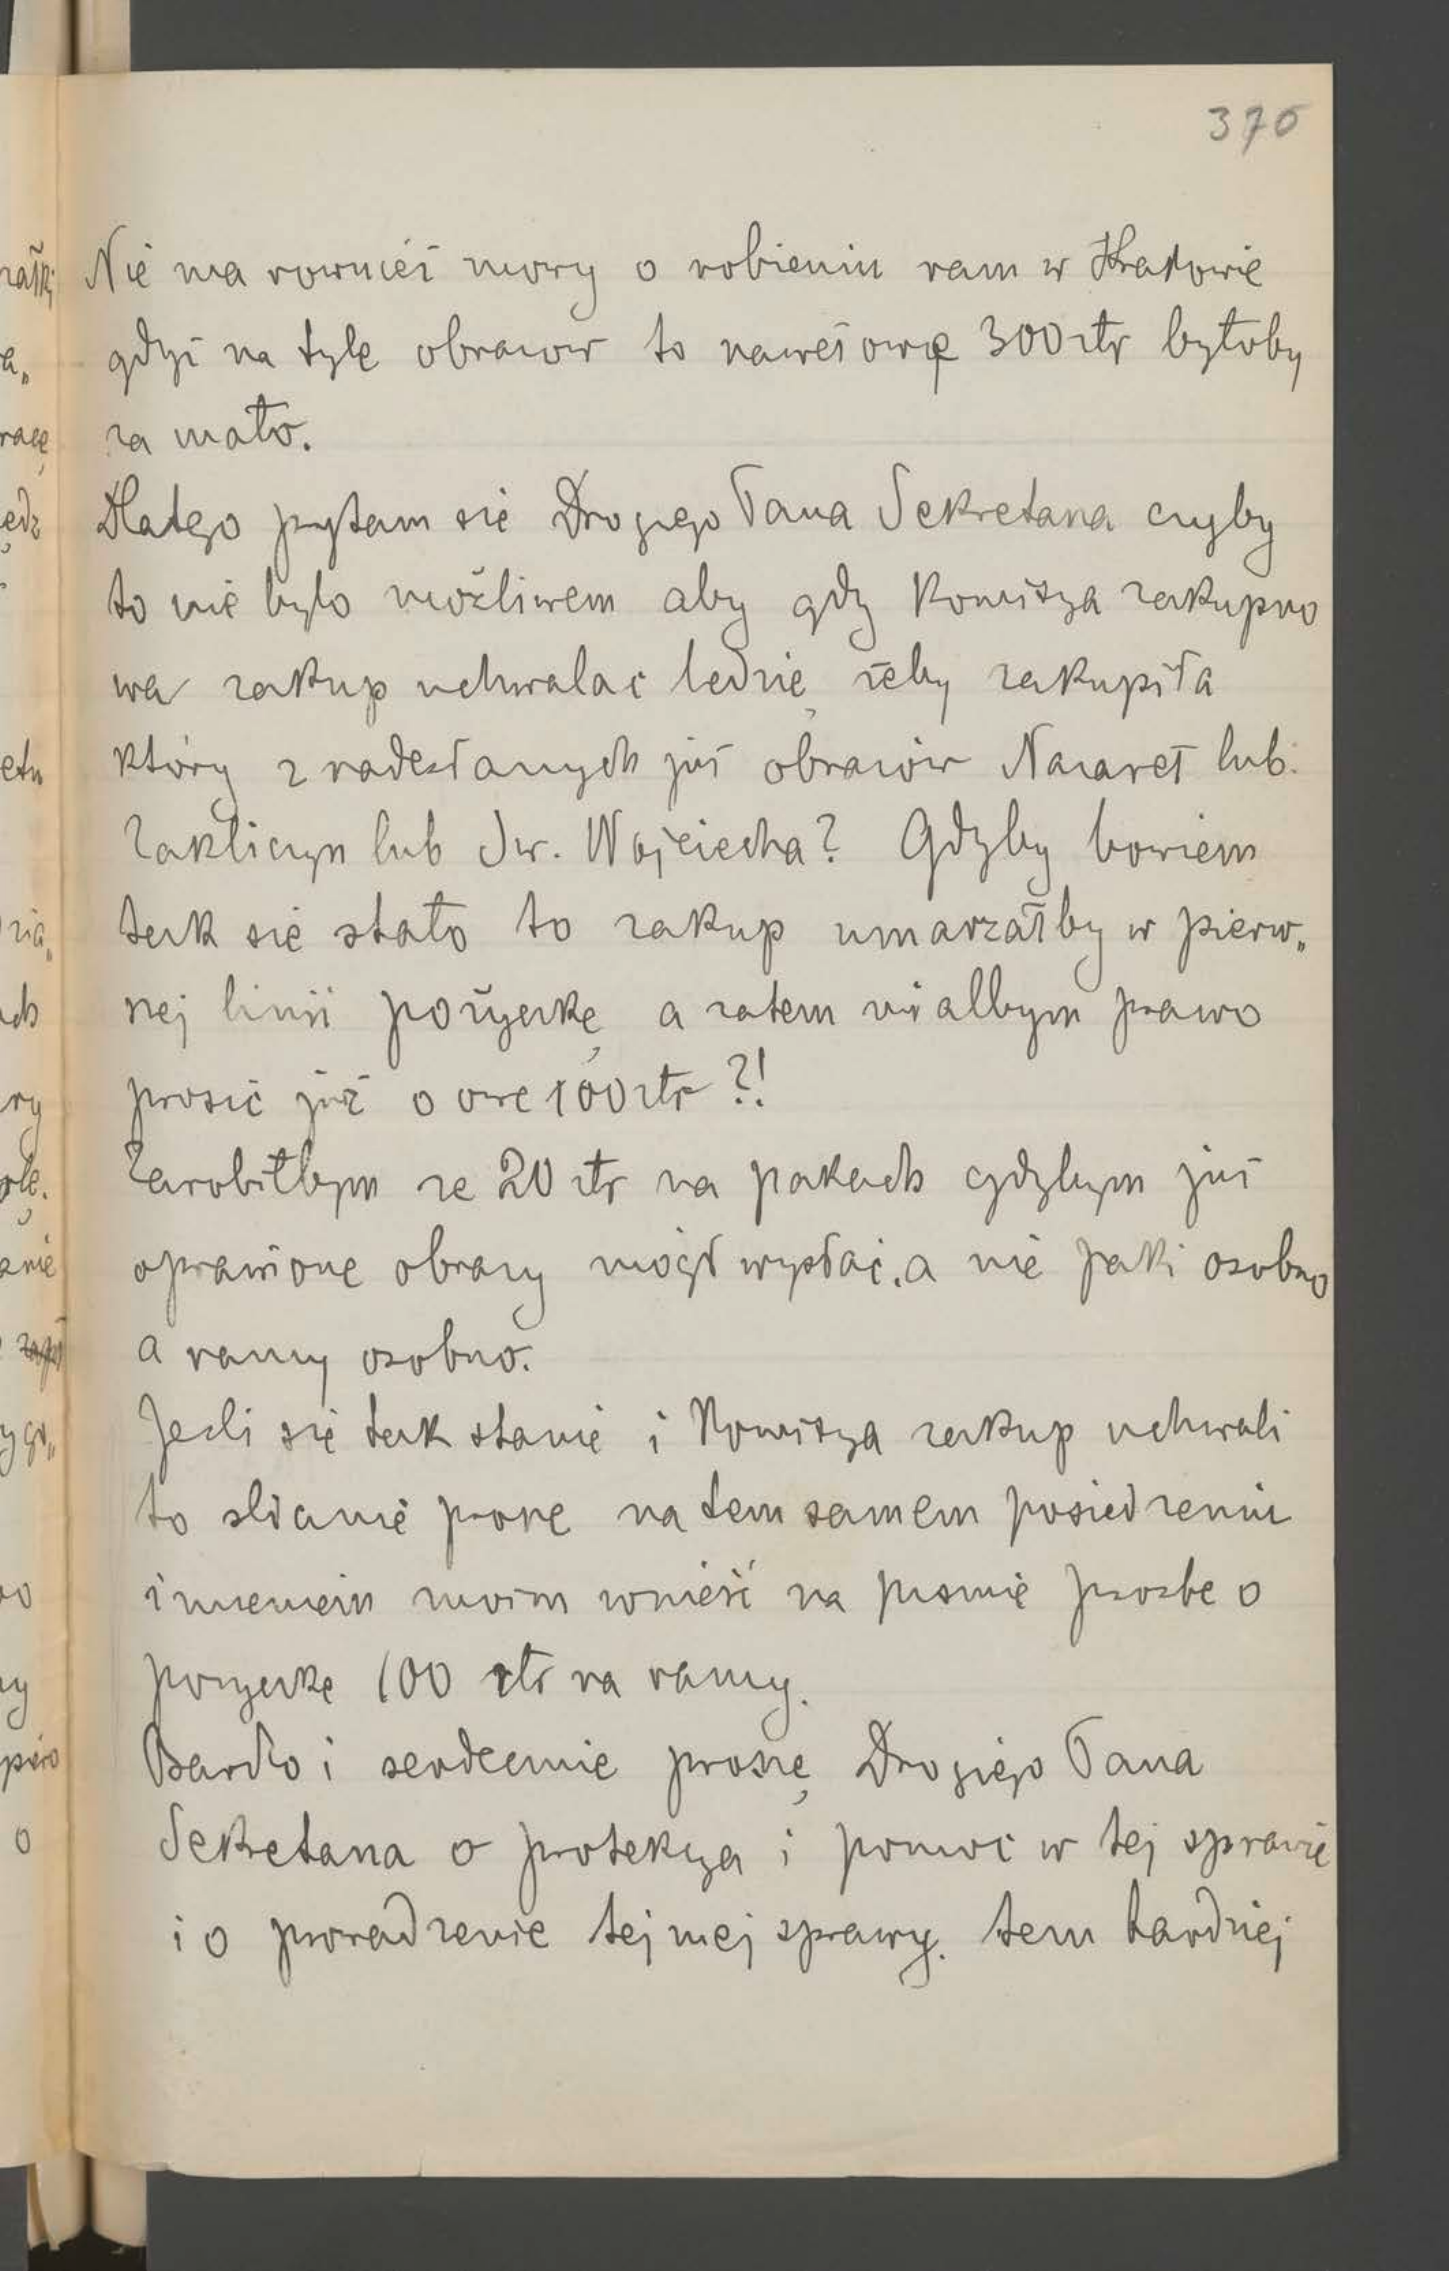 376
Nie ma rownież mowy o robieniu ram w Krakowie
gdyż na tyle obrazow to nawet owe 300 złr byłoby
za mało.
Dlatego pytam się Drogiego Pana Sekretarza czyby
to nie było możliwem aby gdy Komisya zakupno
wa zakup uchwalac będzie, żeby zakupiła
który z nadesłanych już obrazów Nazaret lub
Zakliczyn lub Sw. Wojciecha? Gdyby bowiem
tak się stało to zakup umarzałby w pierw„
szej linii pożyczkę a zatem miałbym prawo
prosić już o owe 100 złr?!
Zarobiłbym ze 20 złr na pakach gdybym już
oprawione obrazy mógł wysłać, a nie paki osobno
a ramy osobno.
Jesli się tak stanie i Komisya zakup uchwali
to slicznie proszę na tem samem posiedzeniu
imieniem moim wnieść na pismie prozbe o
pozyczke 100 złr na ramy.
Bardzo i serdecznie proszę Drogiego Pana
Sekretarza o protekcya i pomoc w tej sprawie
i o tej mej sprawy. tem bardziej